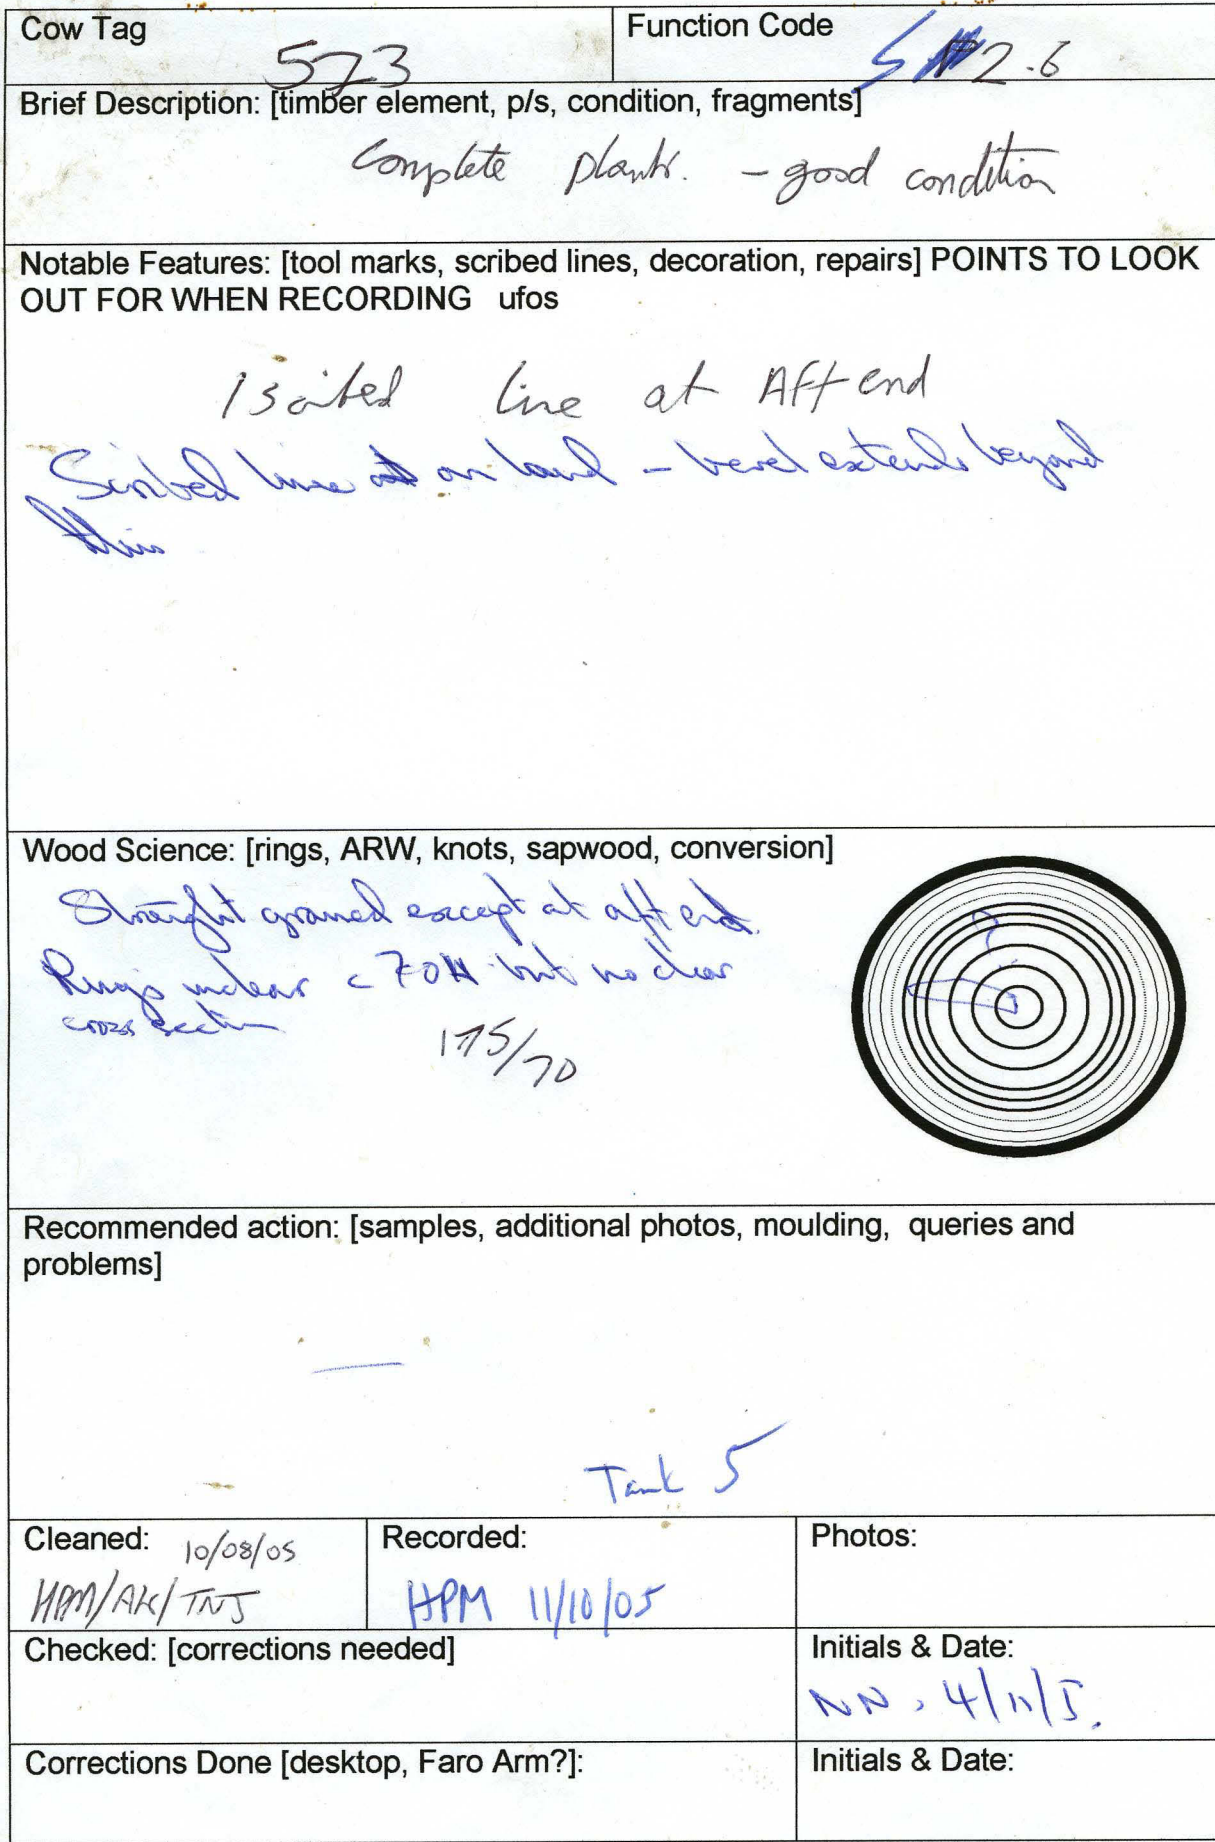 Cow Tag
523
Function Code
S 2.6
Brief Description: [timber element, p/s, condition, fragments]
Complete plank. - good condition
Notable Features: [tool marks, scribed lines, decoration, repairs] POINTS TO LOOK
OUT FOR WHEN RECORDING ufos
1 scribed line at Aft end
Scribed line on land - bevel extends beyond
this
Wood Science: [rings, ARW, knots, sapwood, conversion]
Straight grained except at aft end.
Rings unclear c 70 but no clear
cross section
175/70
Recommended action: [samples, additional photos, moulding, queries and
problems]
—
Tank 5
Cleaned: 10/08/05
HPM/AK/TNJ
Recorded:
HPM 11/10/05
Photos:
Checked: [corrections needed]
Initials & Date:
NN. 4/11/5.
Corrections Done [desktop, Faro Arm?]:
Initials & Date: